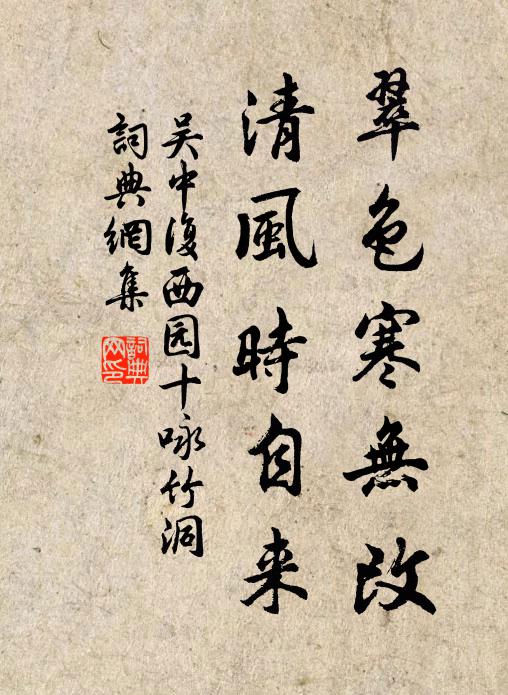 翠色寒無改
清風時自来
吴中復西园十咏竹洞
詞典網集
詞典網印